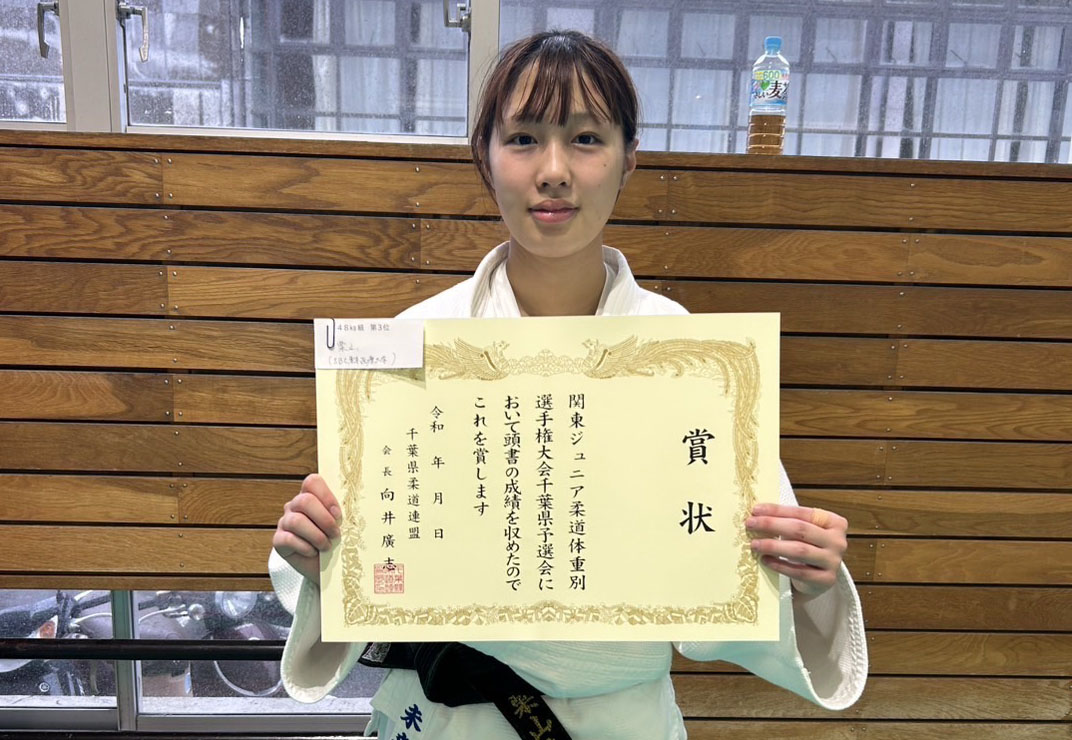 48kg級 第3位
賞状
関東ジュニア柔道体重別
選手権大会千葉県予選会に
おいて頭書の成績を収めたので
これを賞します
令和 年 月 日
千葉県柔道連盟
会長 向井廣志
600
麦茶